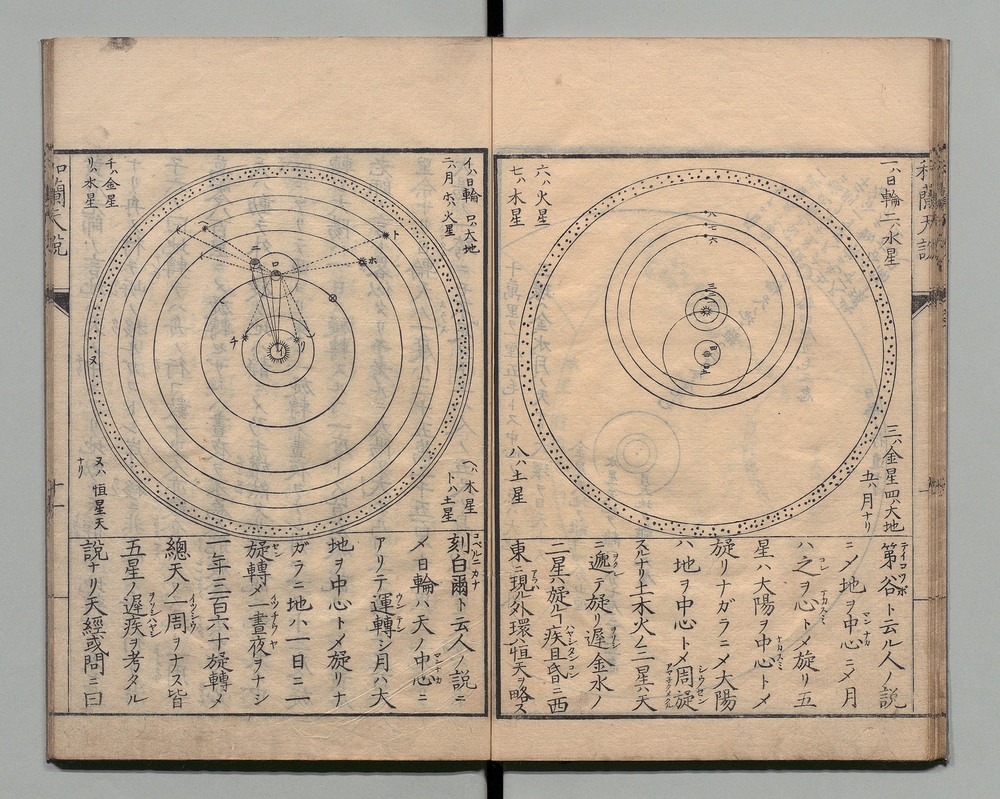 一ハ日輪二ハ水星
三ハ金星四ハ大地
五ハ月ナリ
六ハ火星
七ハ木星
八ハ土星
第谷ト云ル人ノ説
ニメ地ヲ中心ニメ月
ハ之ヲ心トメ旋リ五
星ハ大陽ヲ中心トメ
旋リナガラニメ大陽
ハ地ヲ中心トメ周旋
スルナリ土木火ノ三星ハ天
ニ遞テ旋リ遲シ金水ノ
二星ハ旋ルヿ疾旦昏ニ西
東ニ現ル外環ハ恒天ヲ略ス
イハ日輪 ロハ大地
ニハ月 ホハ火星
ヘハ木星
トハ土星
チハ金星
リハ水星
ヌハ恒星天
ナリ
刻白爾ト云人ノ説ニ
メ日輪ハ天ノ中心ニ
アリテ運轉シ月ハ大
地ヲ中心トメ旋リナ
ガラニ地ハ一日ニ一
旋轉メ一晝夜ヲナシ
一年三百六十旋轉メ
總天ノ一周ヲナス皆
五星ノ遲疾ヲ考タル
説ナリ天經或問ニ曰